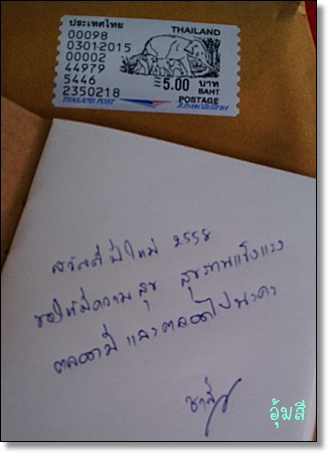 ประเทศไทย THAILAND
00098
03012015
00002
44979
5446
2350218
5.00 บาท
BAHT
POSTAGE
THAILAND POST
สวัสดีปีใหม่ 2558
ขอให้มีความสุข สุขภาพแข็งแรง
ตลอดปี และตลอดไปนะคะ
อุ้มสี